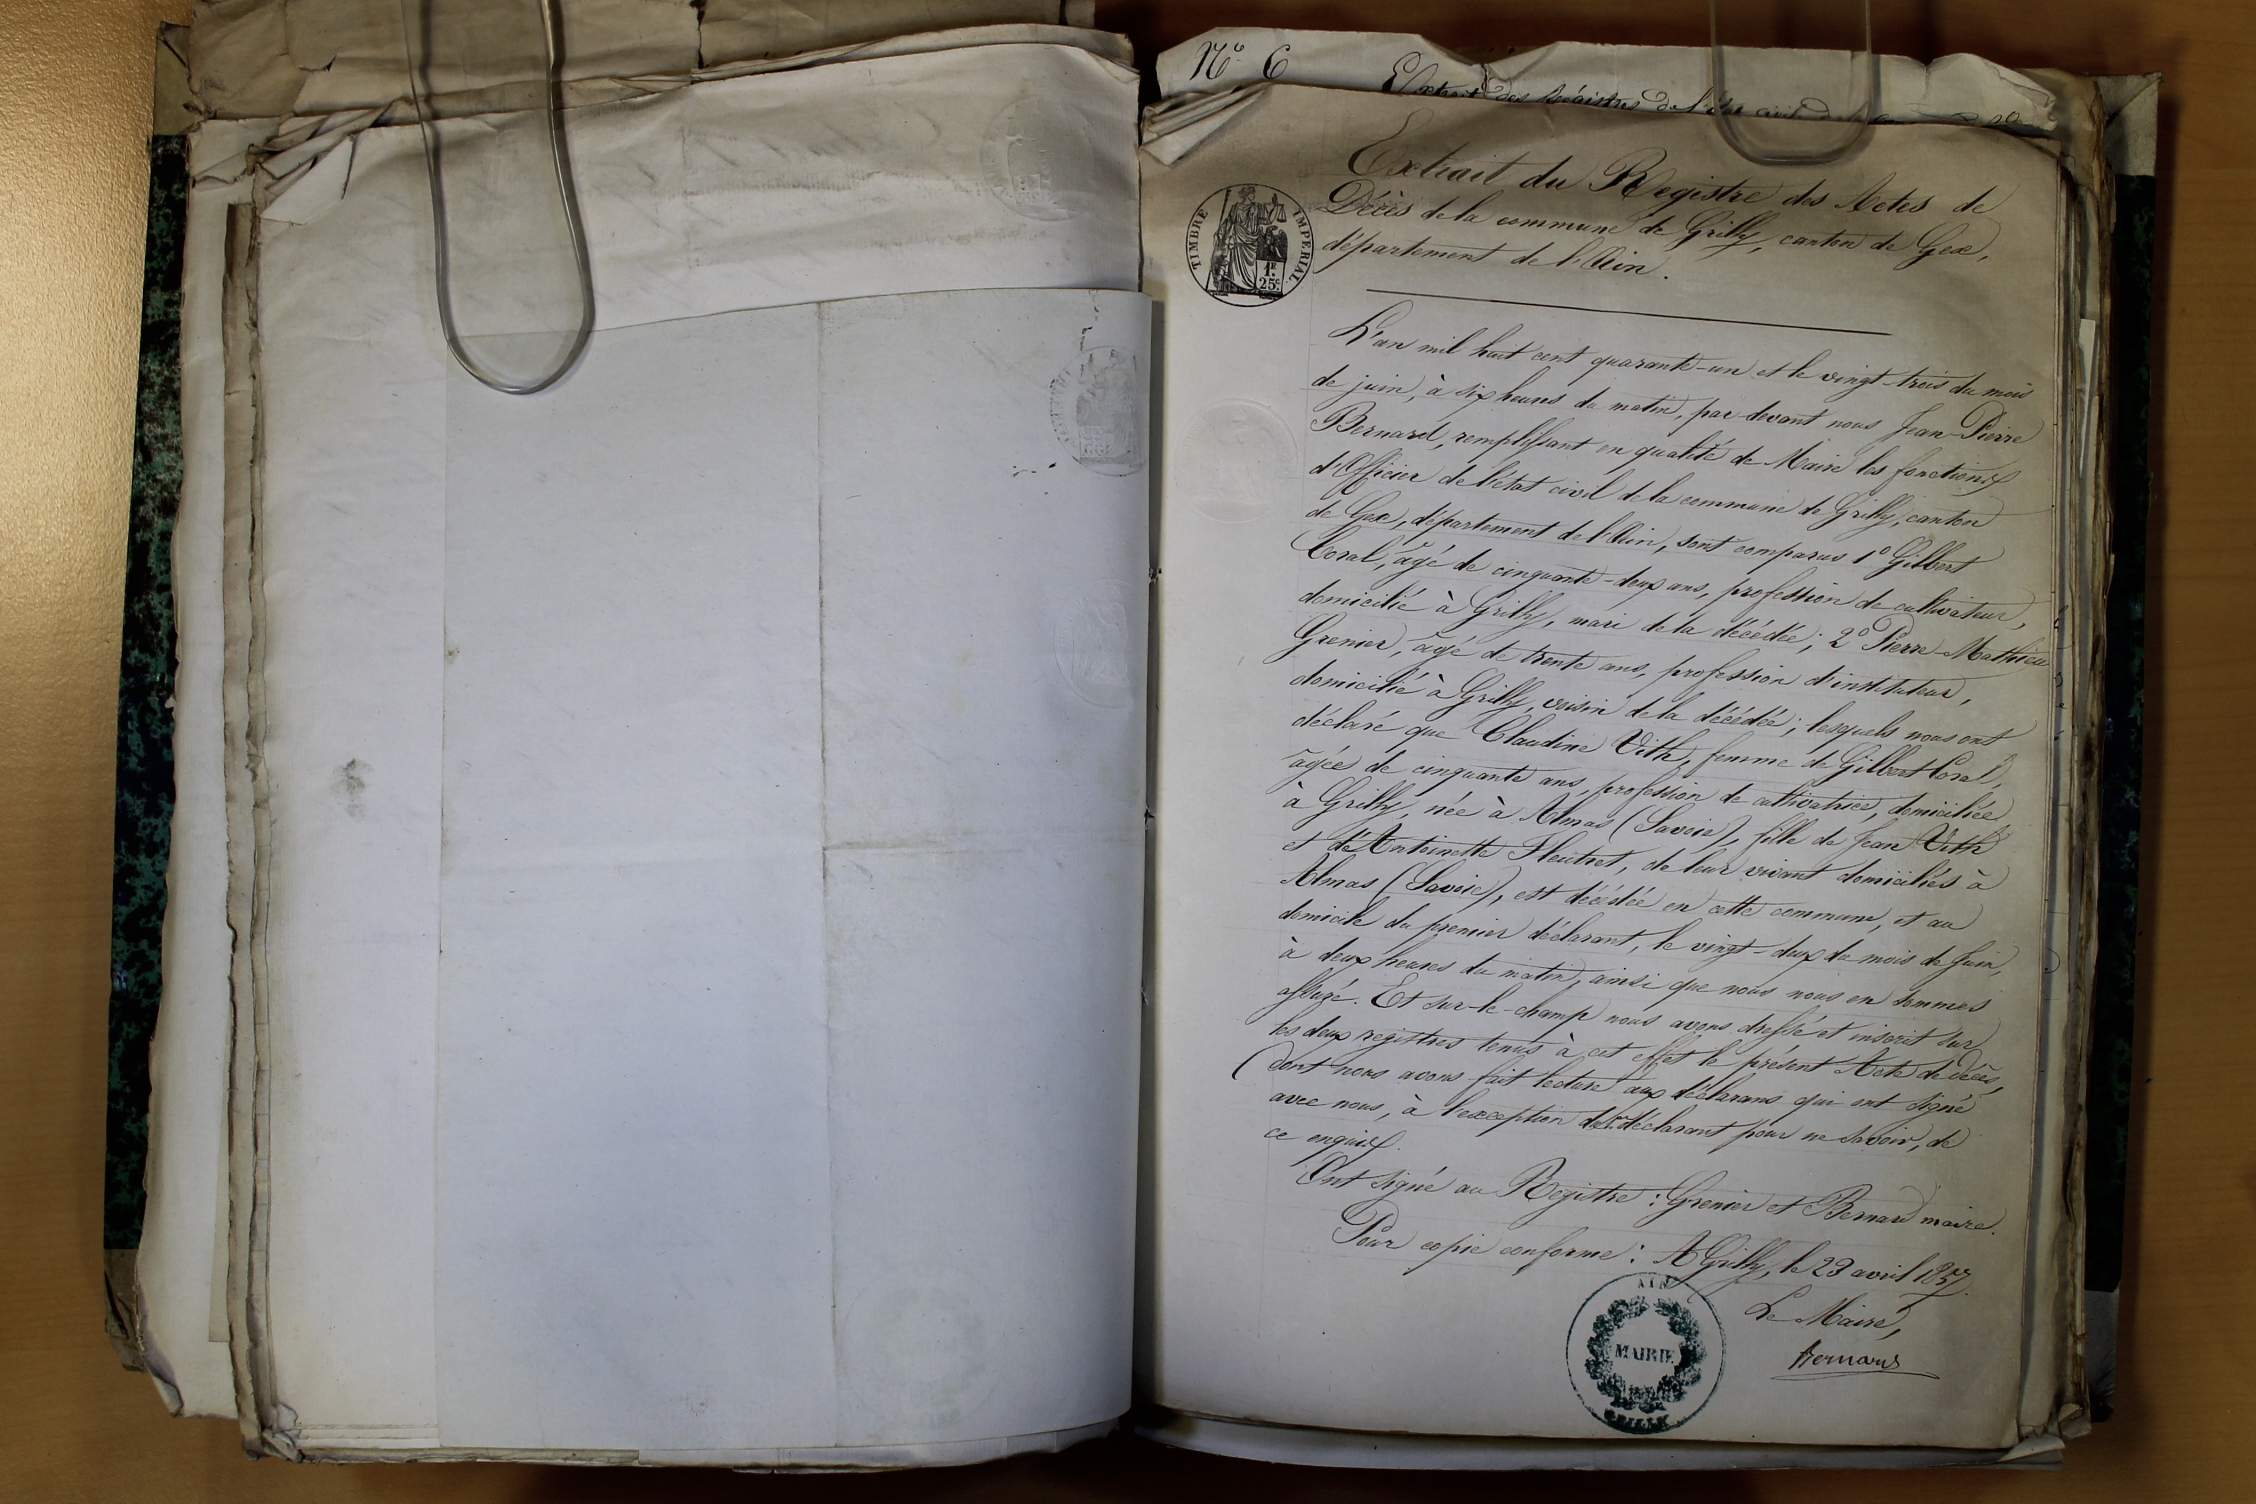 N° 6
Extrait des Registres de l'état civil de la
Extrait du Registre des Actes de
Décès de la commune de Grilly, canton de Gex,
département de l'Ain.
TIMBRE IMPERIAL
1F.
25c.
L'an mil huit cent quarante-un et le vingt-trois du mois
de juin, à six heures du matin, par-devant nous Jean-Pierre
Bernard, remplissant en qualité de Maire les fonctions
d'Officier de l'état civil de la commune de Grilly, canton
de Gex, département de l'Ain, sont comparus 1° Gilbert
Coral, âgé de cinquante-deux ans, profession de cultivateur,
domicilié à Grilly, mari de la décédée; 2° Pierre-Mathieu
Grenier, âgé de trente ans, profession d'instituteur,
domicilié à Grilly, voisin de la décédée; lesquels nous ont
déclaré que Claudine Vith, femme de Gilbert Coral,
âgée de cinquante ans, profession de cultivatrice, domiciliée
à Grilly, née à Almas (Savoie), fille de Jean Vith
et d'Antoinette Fleutret, de leur vivant domiciliés à
Almas (Savoie), est décédée en cette commune, et au
domicile du premier déclarant, le vingt-deux du mois de Juin,
à deux heures du matin, ainsi que nous nous en sommes
assuré. Et sur-le-champ nous avons dressé et inscrit sur
les deux registres tenus à cet effet le présent Acte de décès,
dont nous avons fait lecture aux déclarans qui ont signé
avec nous, à l'exception du 1er déclarant pour ne savoir, de
ce enquis.
Ont signé au Registre: Grenier et Bernard maire.
Pour copie conforme: A Grilly, le 23 avril 1857.
Le Maire,
Bernard
AIN
MAIRIE
GRILLY